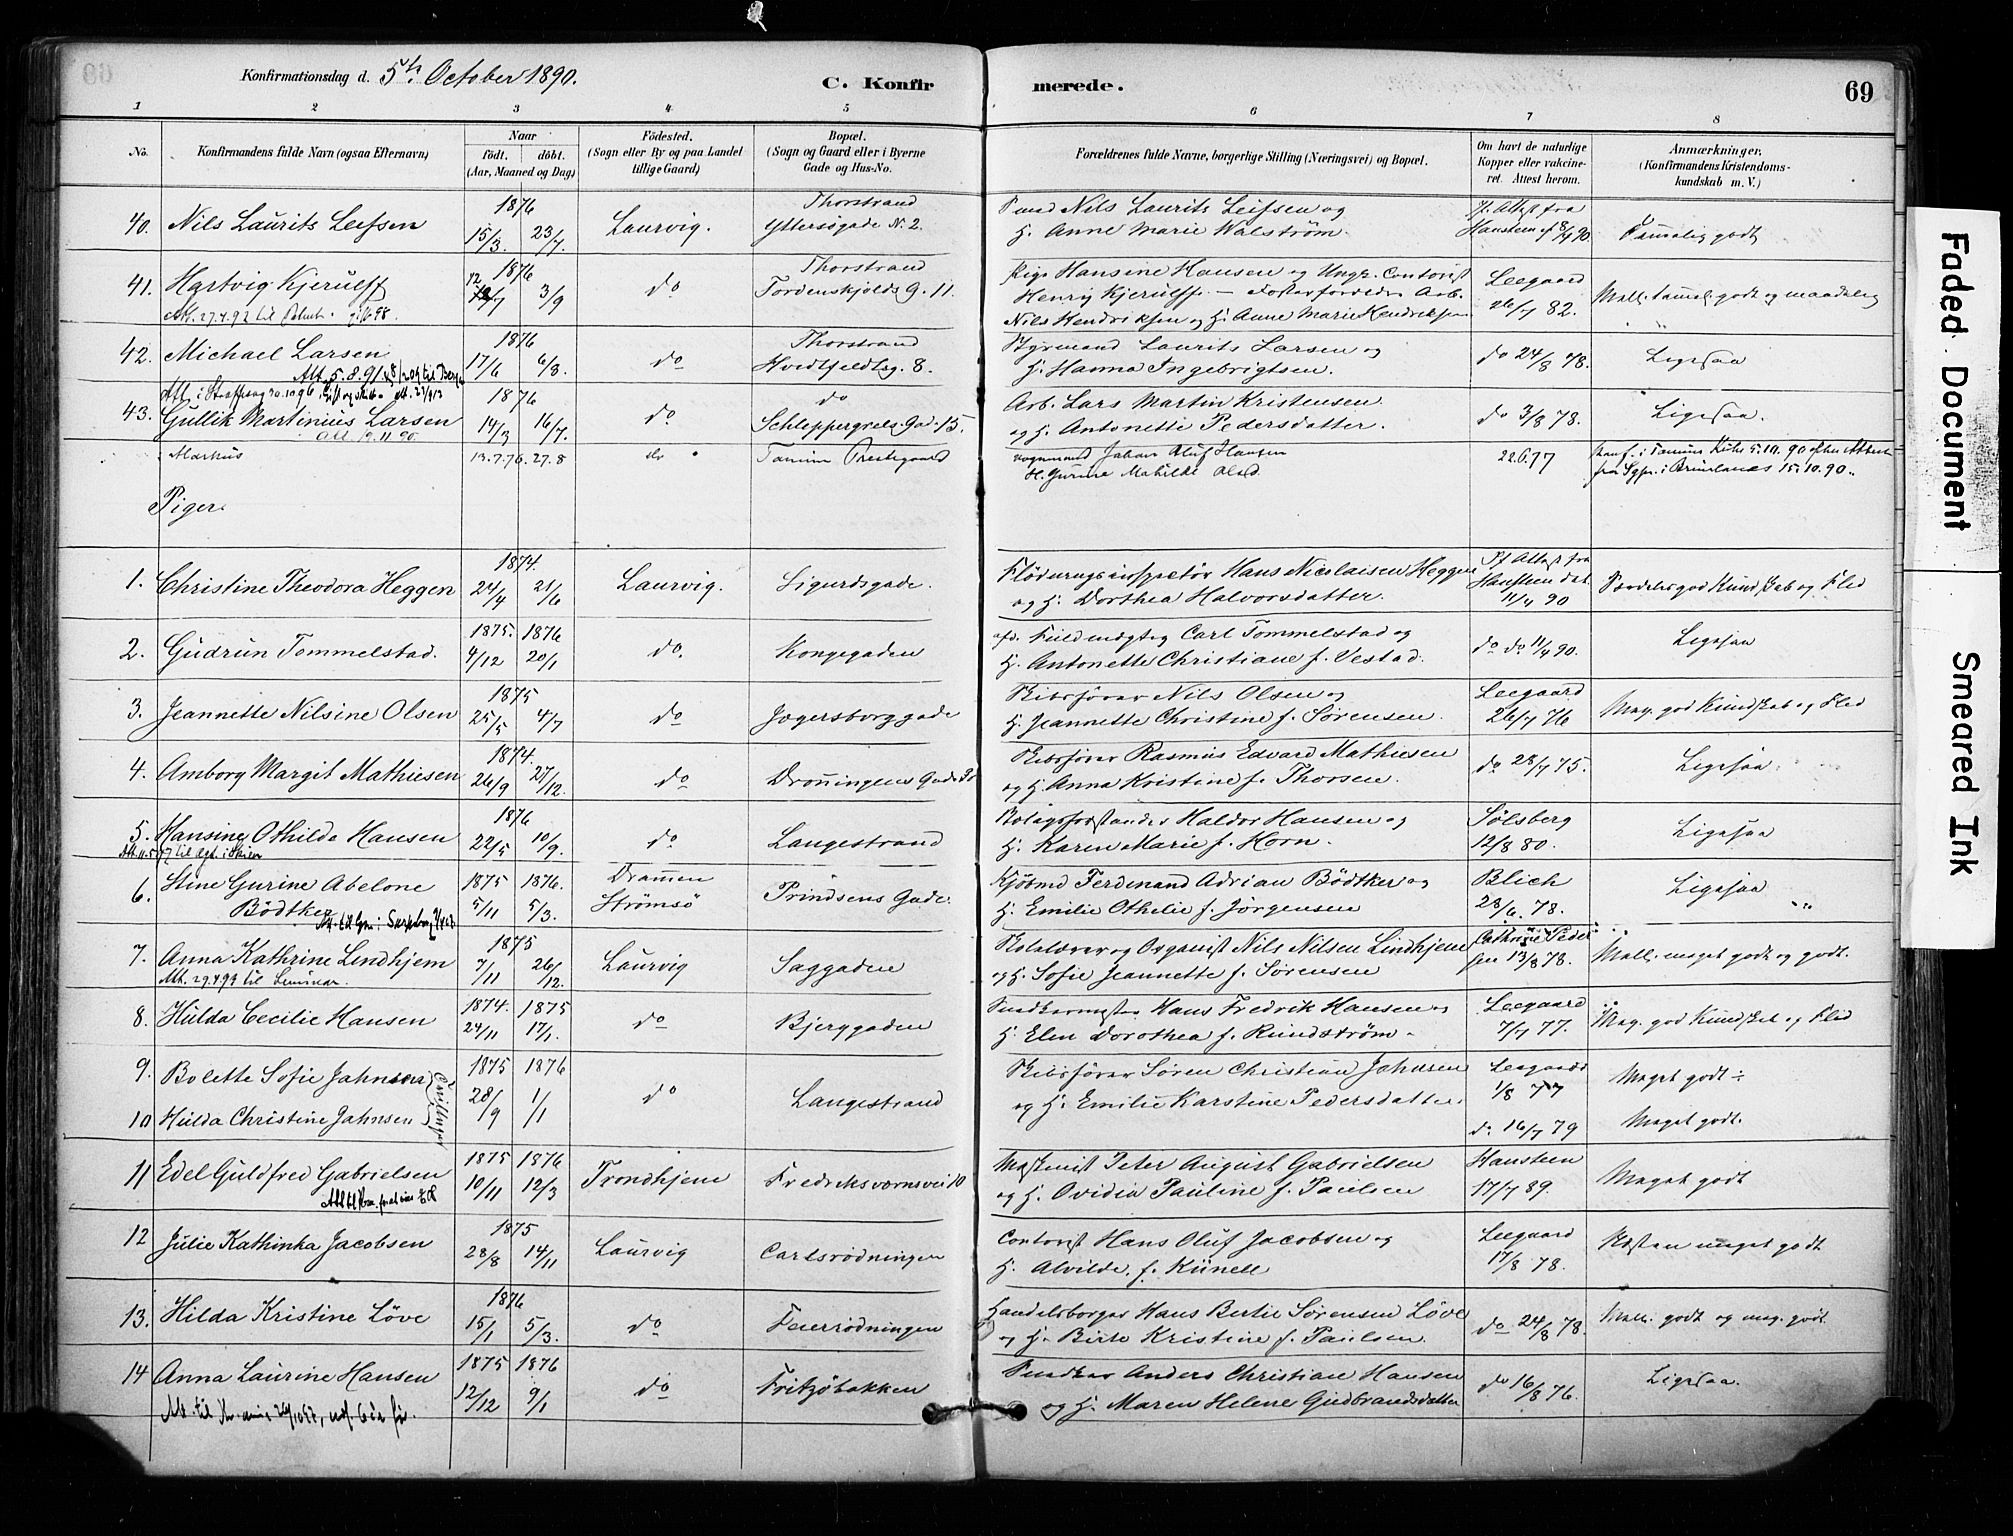 Konfirmationsdag d. 5te October 1890.
C. Konfirmerede.
69
1 2 3 4 5 6 7 8
No.
Konfirmandens fulde Navn (ogsaa Efternavn)
Naar
födt. döbt.
(Aar, Maaned og Dag)
Födested.
(Sogn eller By og paa Landet
tillige Gaard)
Bopæl.
(Sogn og Gaard eller i Byerne
Gade og Hus-No.
Forældrenes fulde Navne, borgerlige Stilling (Næringsvei) og Bopæl.
Om havt de naturlige
Kopper eller vakcine-
ret. Attest herom.
Anmærkninger,
(Konfirmandens Kristendoms-
kundskab m. V.)
40. Nils Laurits Leifsen 1876 15/3. 23/7. Laurvig. Thorstrand
Yttersøgade N. 2. Nils Laurits Leifsen og
H. Anne Marie Walström. Attest fra
Hansteen 90 Tæmelig godt
41. Hartvig Kjerulff 1876 12/7 3/9 do Thorstrand
Tordenskjolds G. 11. Pige Hansine Hansen og Ungk. Contorist
Henry Kjerulff. – Fosterforældre Arb.
Nils Hendriksen og H. Anne Marie Hendriksen Leegaard
26/7 82. Mell. tamel. godt og maadelig
Att. 27.4.92 til
42. Michael Larsen 1876 17/6 6/8. do Thorstrand
Hvidtfeldtsg. 8. Styrmand Laurits Larsen og
H. Hanna Ingebrigtsen. do 24/8 78. Ligesaa
Att. 5.8.91
43. Gullik Martinius Larsen 1876 14/3 16/7. do do
Schleppergrels Gad. 15. Arb. Lars Martin Kristensen
og H. Antonette Pedersdatter. do 3/8 78. Ligesaa.
Att. 19.11.90
Markus 13.7.76. 27.8 do Tanum Prestegaard Vognmand Johan Oluf Hansen
H. Gurine Mathilde Olsd. 22.6.77 Konf. i Tanums Kirke 5.10.90 efter Attest
fra Sgpr. i Brunlanes 15.10.90.
Piger.
1. Christine Theodora Heggen 1874. 24/4 21/6 Laurvig. Sigurdsgade. Flödningsinspektör Hans Nicolaisen Heggen
og H. Dorthea Halvorsdatter. Attest fra
Hansteen dat.
11/4 90 Særdeles god Kundskab og Flid
2. Gudrun Tommelstad. 1875. 4/12 1876 20/1 do. Kongegaden Fuldmægtig Carl Tommelstad og
H. Antonette Christiane f. Vestad. do do 11/4 90. Ligesaa
3. Jeannette Nilsine Olsen 1875 25/5 4/7 do Jegersborggade Skibsförer Nils Olsen og
H. Jeannette Christine f. Sørensen. Leegaard
26/7 76 Mag. god Kundskab og Flid
4. Amborg Margit Mathiesen 1874. 26/9 27/12. do Dronningens Gade Skibsförer Rasmus Edvard Mathiesen
og H. Anna Kristine f. Thorsen. do 28/7 75. Ligesaa
5. Hansine Othilde Hansen 1876 22/5 10/9. do Langestrand Boligforstander Haldor Hansen og
H. Karen Marie f. Horn. Sølsberg
12/8 80. Ligesaa
6. Stine Gurine Abelone
Bödtker 1875 5/11 1876. 5/3. Drammen
Strömsö Prindsens Gade. Kjöbmd Ferdinand Adrian Bödtker og
H. Emilie Othelie f. Jörgensen Blich
28/6. 78. Ligesaa
7. Anna Kathrine Lindhjem 1875 7/11 26/12. Laurvig Saggaden Skolelærer og Organist Nils Nilsen Lindhjem
og H. Sofie Jeannette f. Sørensen Cathrine Peder
sen 13/8 78. Mell. meget godt og godt.
Att. 29.4.93 til Seminar.
8. Hulda Cecilie Hansen 1874. 24/11 1875 17/1. do Bjerggaden Snedkermester Hans Fredrik Hansen og
H. Elen Dorothea f. Rundström. Leegaard
7/7 77. Mag. god Kundskab og Flid
9. Bolette Sofie Jahnsen 1875 28/9 1876 1/1 do Langestrand Skibsförer Sören Christian Jahnsen
og H. Emilie Karstine Pedersdatter. Leegaard
1/8 77 Meget godt
Tvillinger
10 Hulda Christine Jahnsen do. 16/7 79 Meget godt.
11 Edel Guldfred Gabrielsen 1875 10/11 1876 12/3 Trondhjem Fredriksværnsvei 10 Maskinist Peter August Gabrielsen
og H. Ovidia Pauline f. Paulsen Hansteen
17/7 89. Meget godt
12 Julie Kathinka Jacobsen 1875 28/8 14/11 Laurvig Carlsrødningen Contorist Hans Oluf Jacobsen og
H. Alvilde. f. Künell Leegaard
17/8 78. Næsten meget godt
13. Hilda Kristine Löve 1876 15/1 5/3. do Feierrødningen Handelsborger Hans Bertie Sørensen Löve
og H. Birte Kristine f. Paulsen. do 24/8 78. Mell. godt og meg. godt
14 Anna Laurine Hansen 1875 12/12 1876 9/1 do Fritzöbakken Snedker Anders Christian Hansen
og H. Maren Helene Gudbrandsdatter do 16/8 76. Ligesaa.
Faded Document
Smeared Ink